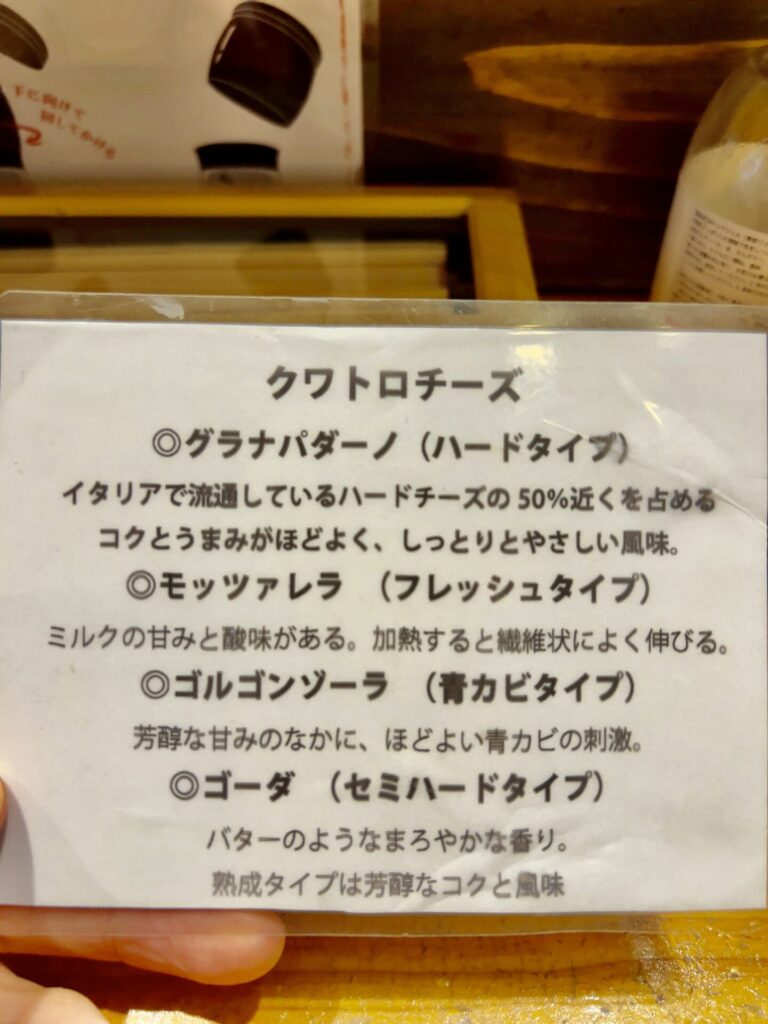 下に向けて
回してかける
クワトロチーズ
◎グラナパダーノ（ハードタイプ）
イタリアで流通しているハードチーズの50%近くを占める
コクとうまみがほどよく、しっとりとやさしい風味。
◎モッツァレラ （フレッシュタイプ）
ミルクの甘みと酸味がある。加熱すると繊維状によく伸びる。
◎ゴルゴンゾーラ （青カビタイプ）
芳醇な甘みのなかに、ほどよい青カビの刺激。
◎ゴーダ （セミハードタイプ）
バターのようなまろやかな香り。
熟成タイプは芳醇なコクと風味